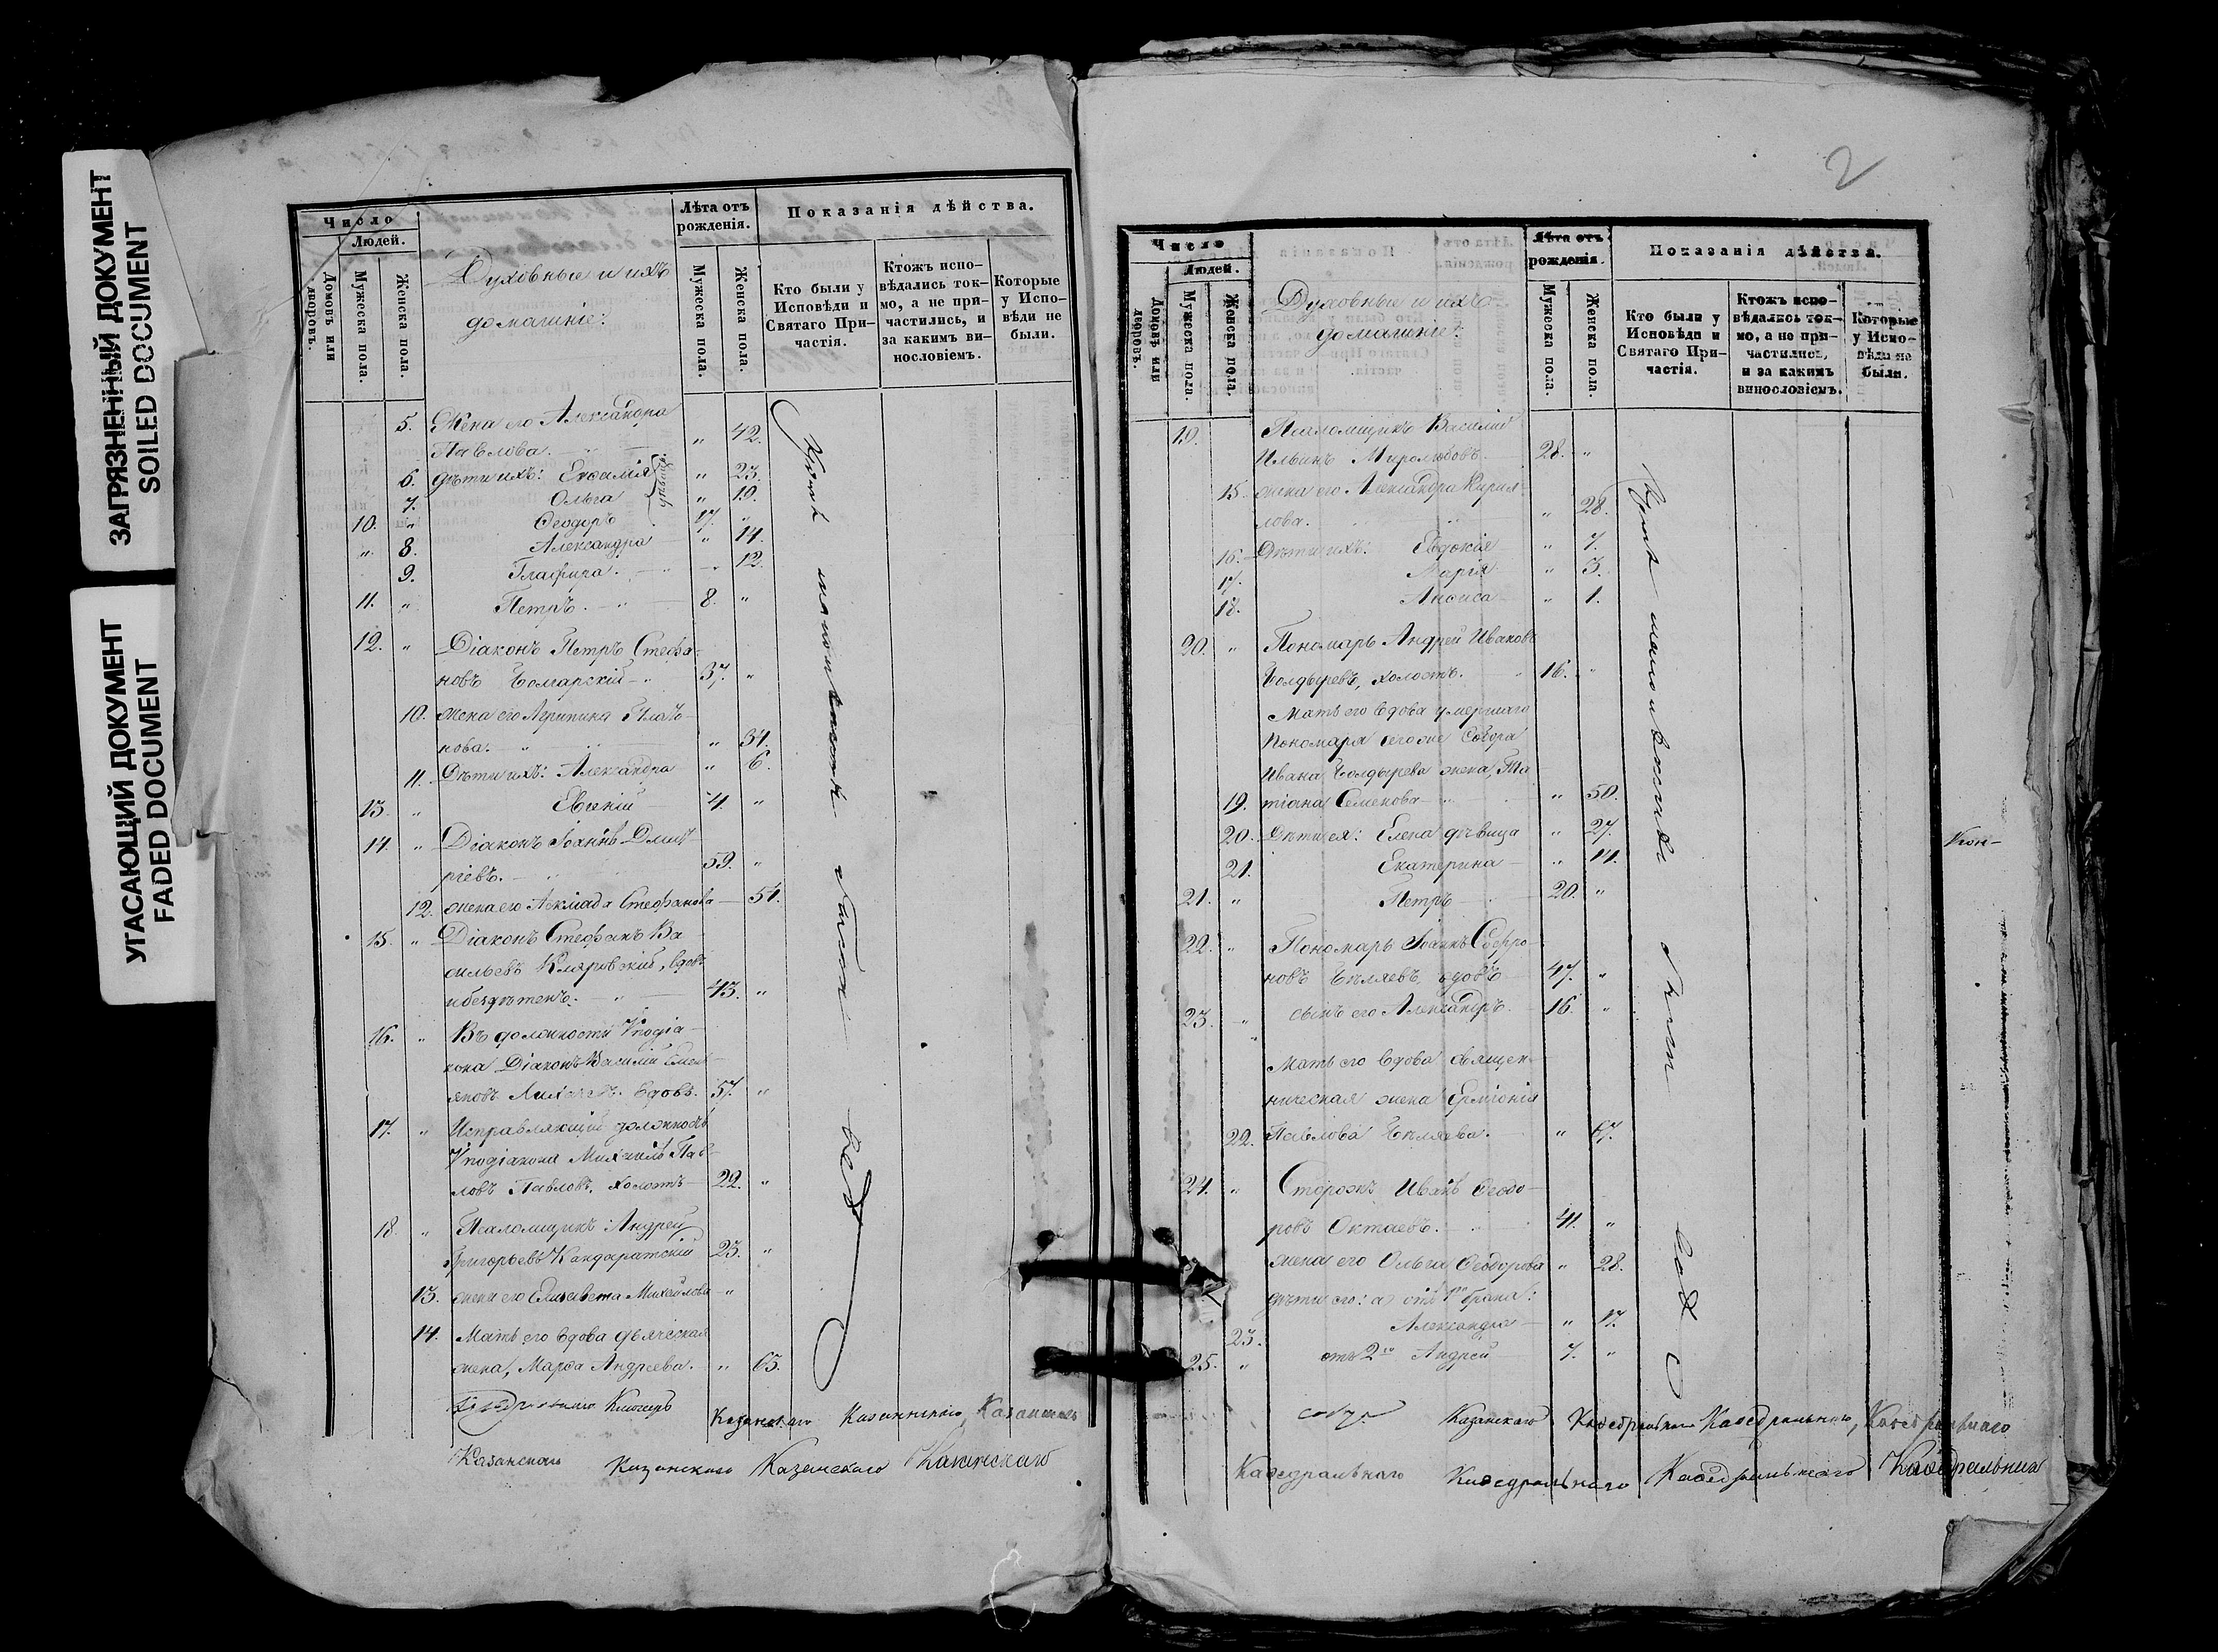 ЗАГРЯЗНЕННЫЙ ДОКУМЕНТ
SOILED DOCUMENT
УГАСАЮЩИЙ ДОКУМЕНТ
FADED DOCUMENT
Число
Людей.
Домовъ или дворовъ.
Мужеска пола.
Женска пола.
Духовные и ихъ
домашніе:
Лѣта отъ рожденія.
Мужеска пола.
Женска пола.
Показанія дѣйства.
Кто были у Исповѣди и Святаго Причастія.
Ктожъ исповѣдались токмо, а не причастились, и за какимъ винословіемъ.
Которые у Исповѣди не были.
5. Жена его Александра
Павлова. " 42.
6. дѣти ихъ: Евфимія " 23.
7. Ольга " 19.
дѣвицы
10. " Ѳеодоръ 17. "
" 8. Александра " 14.
9. Глафира. " 12.
11. " Петръ. 8. "
12. " Діаконъ Петръ Стефа-
новъ Болгарскій 37. "
10. жена его Агрипина Плато-
нова. " 34.
11. Дѣти ихъ: Александра " 6.
13. " Евгеній 4. "
14. " Діаконъ Іоаннъ Дмит-
ріевъ. 59. "
12. жена его Стефанова 54.
15. " Діаконъ Стефанъ Ва-
сильевъ вдовъ
и бездѣтенъ. 43. "
16. " Въ должности Уподіа-
кона Діаконъ Василій Емел-
яновъ вдовъ. 57. "
17. " Исправляющій должность
Уподіакона Михаилъ Пав-
ловъ Павловъ, холостъ 22. "
18. " Псаломщикъ Андрей
Григорьевъ Кандаратскій 23. "
13. жена его Елисавета Михайлова "
14. Мать его вдова дьяческая
жена, Марѳа Андреева. " 63.
Казанскаго
Казанскаго Казанскаго Казанскаго
2
Число
Людей.
Домовъ или дворовъ.
Мужеска пола.
Женска пола.
Духовные и ихъ
домашніе:
Лѣта отъ рожденія.
Мужеска пола.
Женска пола.
Показанія дѣйства.
Кто были у Исповѣди и Святаго Причастія.
Ктожъ исповѣдались токмо, а не причастились, и за какимъ винословіемъ.
Которые у Исповѣди не были.
19. Псаломщикъ Василій
Ильинъ Миролюбовъ. 28. "
15. жена его Александра Кирил-
лова. " 28.
16. Дѣти ихъ: Евдокія " 7.
17. Марія " 3.
18. Анѳиса " 1.
20. " Пономарь Андрей Ивановъ
Болдыревъ, холостъ. 16. "
Мать его вдова умершаго
Пономаря сегоже Собора
Ивана Болдырева жена, Та-
19. тіана Семенова " 50.
20. Дѣти ея: Елена дѣвица " 27.
21. Екатерина " 14.
21. " Петръ 20. "
22. " Пономарь Іоаннъ Софро-
новъ Бѣляевъ, вдовъ 47. "
23. " сынъ его Александръ. 16. "
Мать его вдова священ-
ническая жена Ерміонія
22. Павлова Бѣляева. " 67.
24. " Сторожъ Иванъ Ѳеодо-
ровъ Октаевъ. 41. "
жена его Ольга Ѳеодорова " 28.
дѣти его: а) отъ 1го брака:
23. Александра " 17.
25. " отъ 2го Андрей 7. "
Казанскаго Каѳедральнаго
Каѳедральнаго Каѳедральнаго Каѳедральнаго